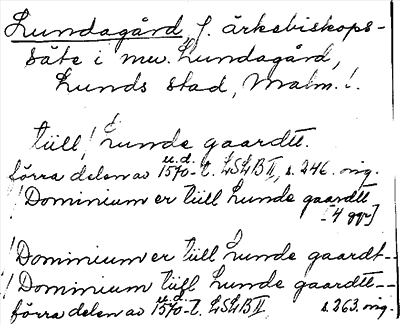 Lundagård, f. ärkebiskops-
säte i nuv. Lundagård,
Lunds stad, Malm. l.
tüll Lunde gaardtt.
u.d.
förra delen av 1570-t. LSLB II, s. 246. orig.
Dominium er tüll Lunde gaardtt
[4 ggr]
Dominium er tüll Lunde gaardt--
Dominium tüll Lunde gaardtt--
u.d.
förra delen av 1570-t. LSLB II s. 263. orig.